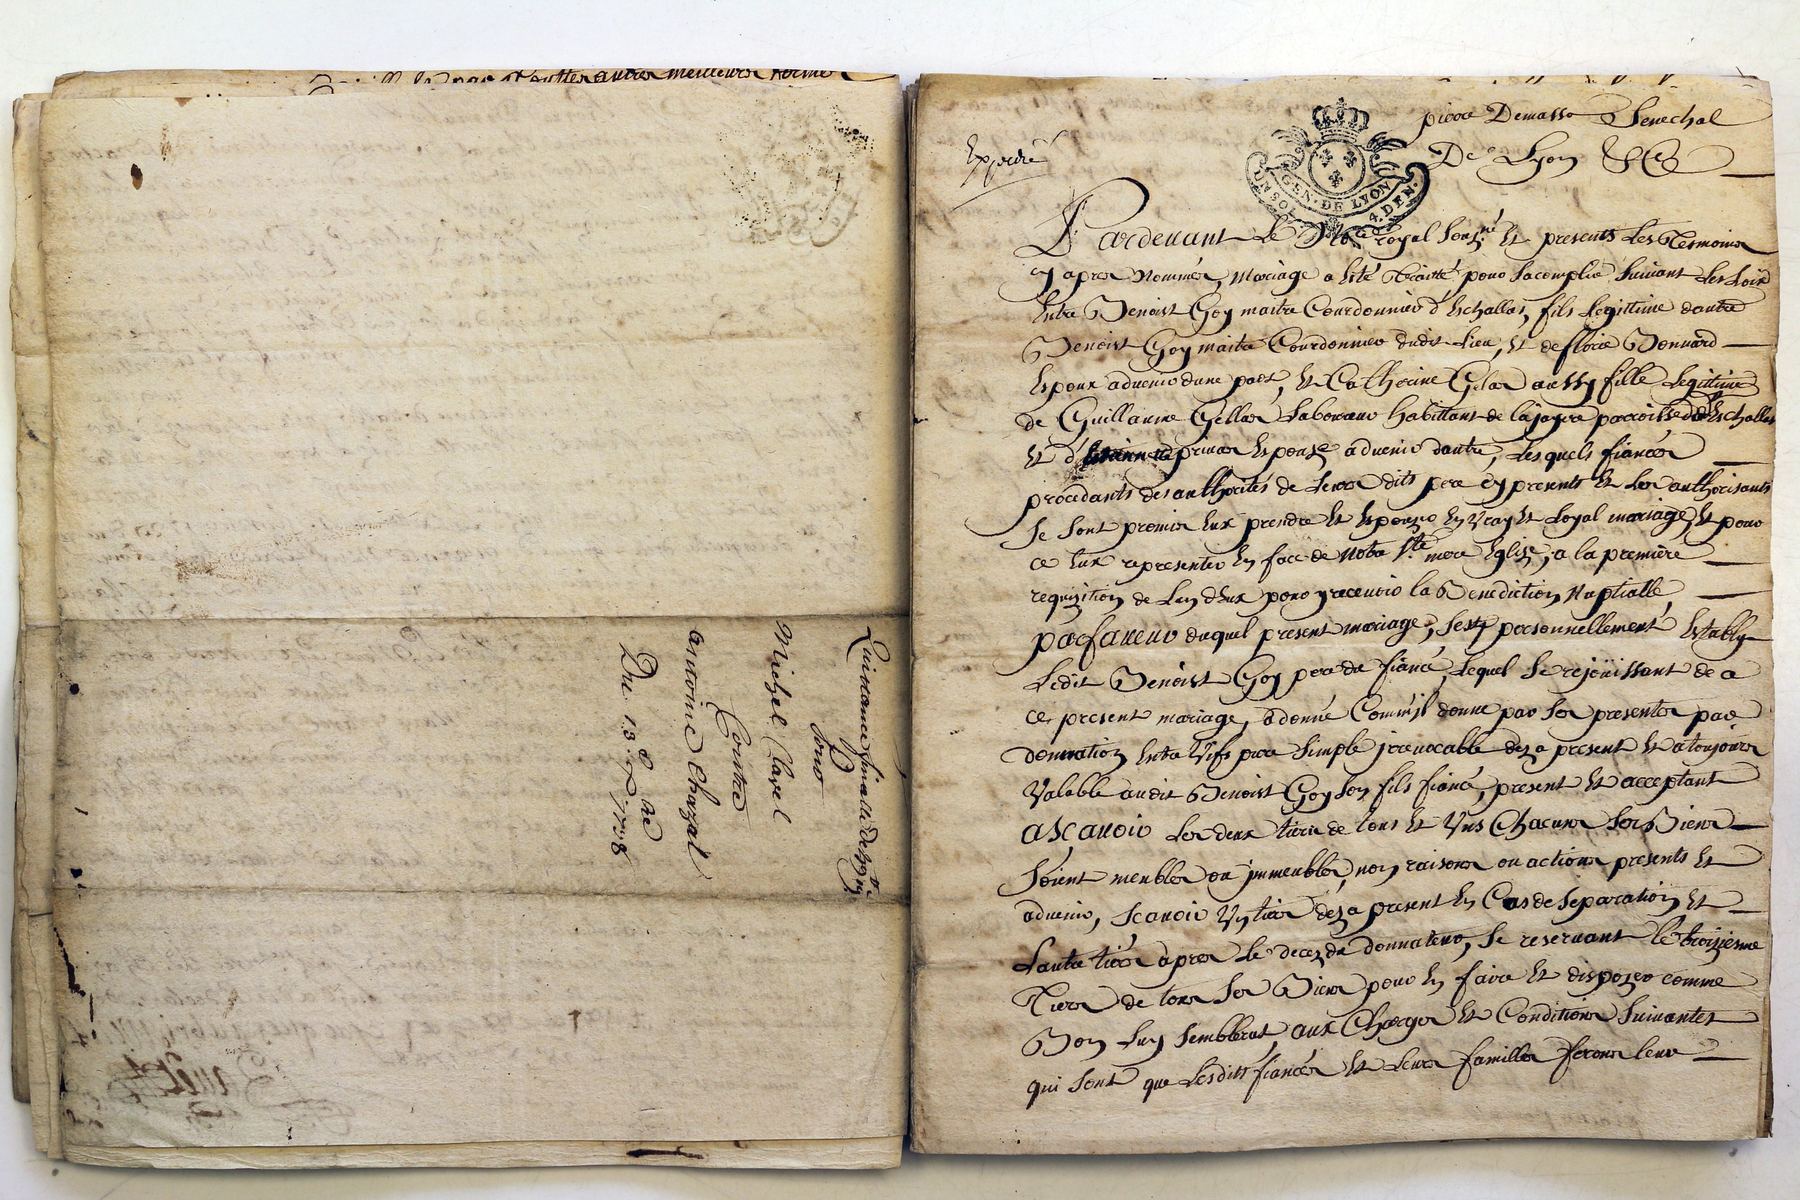 meilleurs forme
Quittance finalle de
pour
Michel Clavel
Contre
antoine Chazal
Du 13e 1738
Expedié
pierre Demasso Senechal
De Lyon &Ca
GEN. DE LYON
UN SOL 4. DEN.
Pardevant Le Nore royal sousné Et presents Les Tesmoins
cy apres Nommés, Mariage a Esté Traitté pour sacomplir suivant Les Loix
Entre Benoist Goy maitre Courdonnier d'Eschallas, fils Legittime dautre
Benoist Goy maitre Courdonnier dudit Lieu, Et de florie Bonnard
Espoux advenir dune part, Et Catherine Gelas aussy fille Legittime
de Guillaume Gellas Laboureur habittant de lajayre parroisse d'Eschallas
Et d' privas Espouse advenir dautre, Lesquels fiancés
procedants des authorités de Leurs dits pere cy presents Et Les authorisants
Se sont promis Eux prendre Et Espouser En Vray Et Loyal mariage, Et pour
ce Eux representer En face de notre Ste mere Eglise, a la premiere
requisition de Lun dEux pour y recevoir la Benediction Nuptialle,
parfaveur duquel present mariage, s'est personnellement Estably
Ledit Benoist Goy pere du fiancé, Lequel se rejoüissant de a
ce present mariage, a donné Comm'il donne par ses presentes par
donnation Entre Vifs pure simple jrrevocable deza present Et a toujours
Valable audit Benoist Goy son fils fiancé, present Et acceptant
asçavoir Les deux tiers de tous Et Uns Chacuns ses Biens
soient meubles ou jmmeubles, noms raisons ou actions presents Et
advenir, scavoir Un tiers deza present En Cas de separation Et
Lautre tiers apres Le decez du donnateur, se reservant le troizieme
Tiers de tous ses Biens pour En faire Et disposer comme
Bon Luy semblerat, aux Charges Et Conditions suivantes
qui sont que Lesdits fiancés Et Leurs familles ferons leur